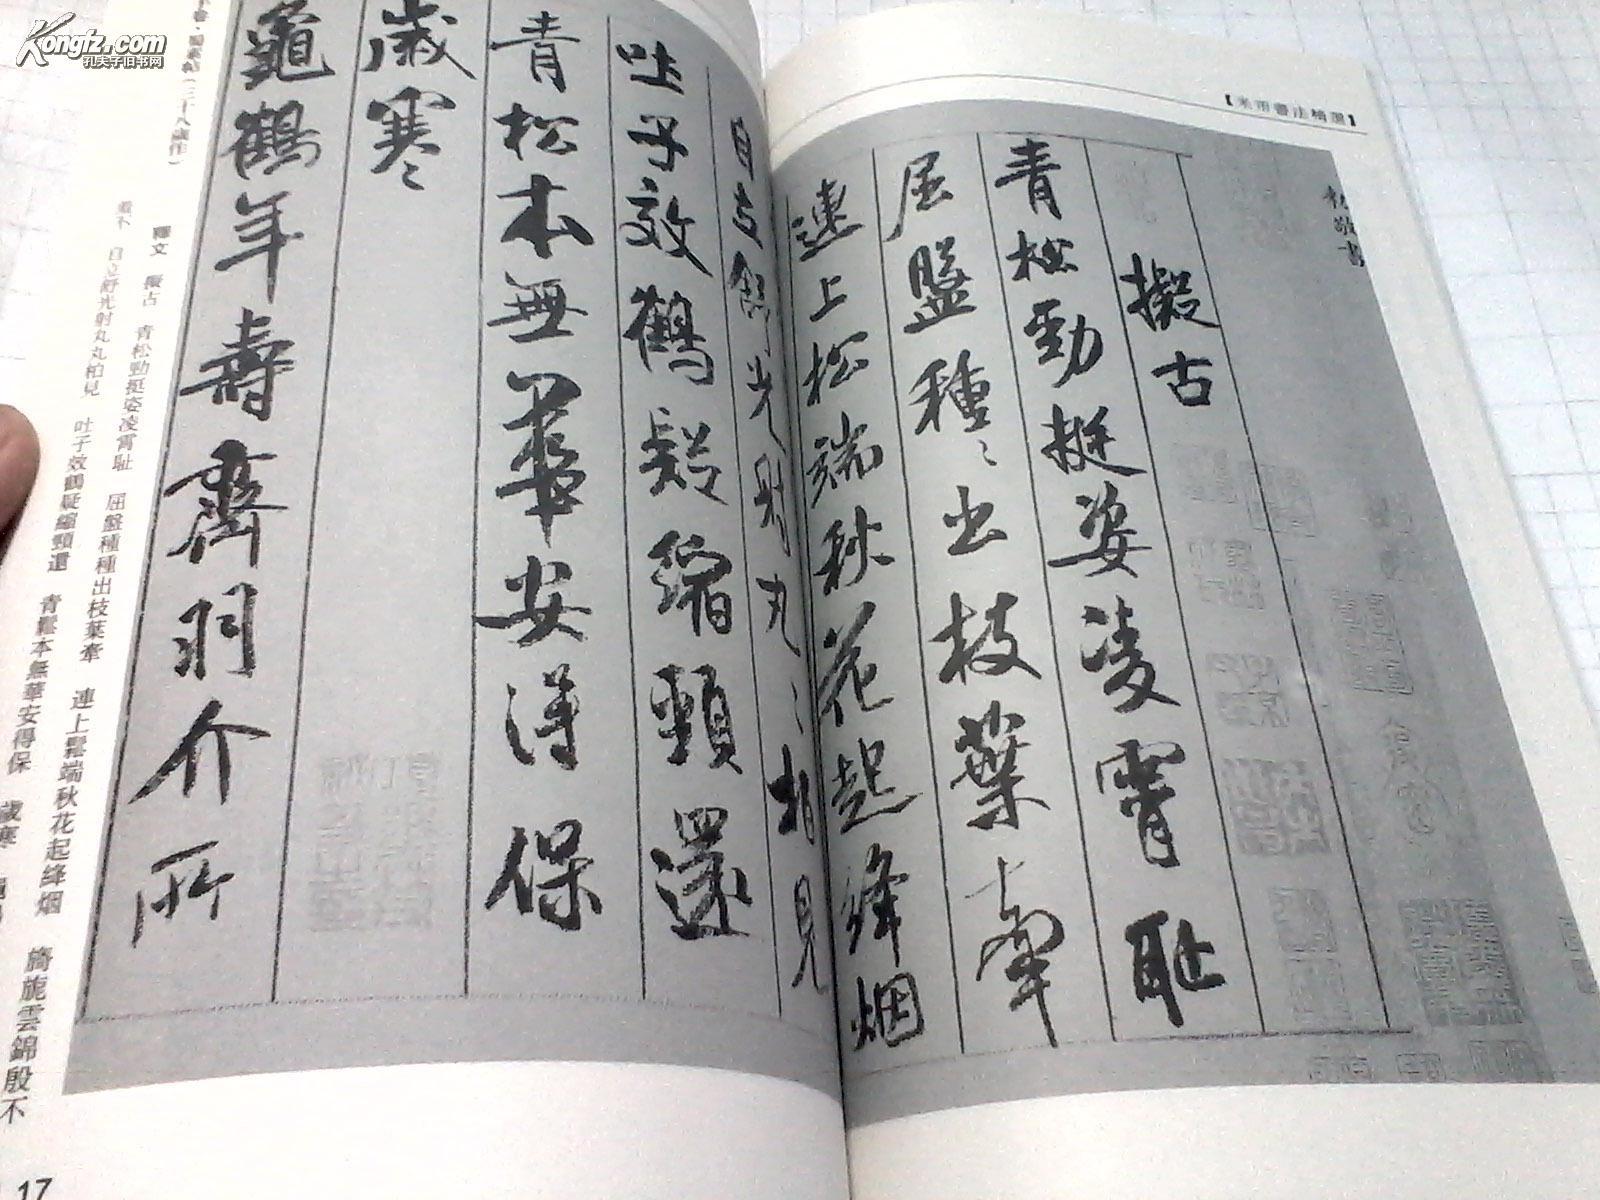 擬古
青松勁挺姿凌霄恥
屈盤種〻出枝葉牽
連上松端秋花起絳烟
自立舒光射丸〻柏見
吐子效鶴疑縮頸還
青松本無華安得保
歲寒〻
龜鶴年壽齊羽介所
蜀素帖（三十八歲作）
釋文 擬古 青松勁挺姿凌霄恥 屈盤種種出枝葉牽 連上鬆端秋花起絳烟 旖旎雲錦殷不
自立舒光射丸丸柏見 吐子效鶴疑縮頸還 青鬆本無華安得保 歲寒
17
Kongfz.com
孔夫子旧书网